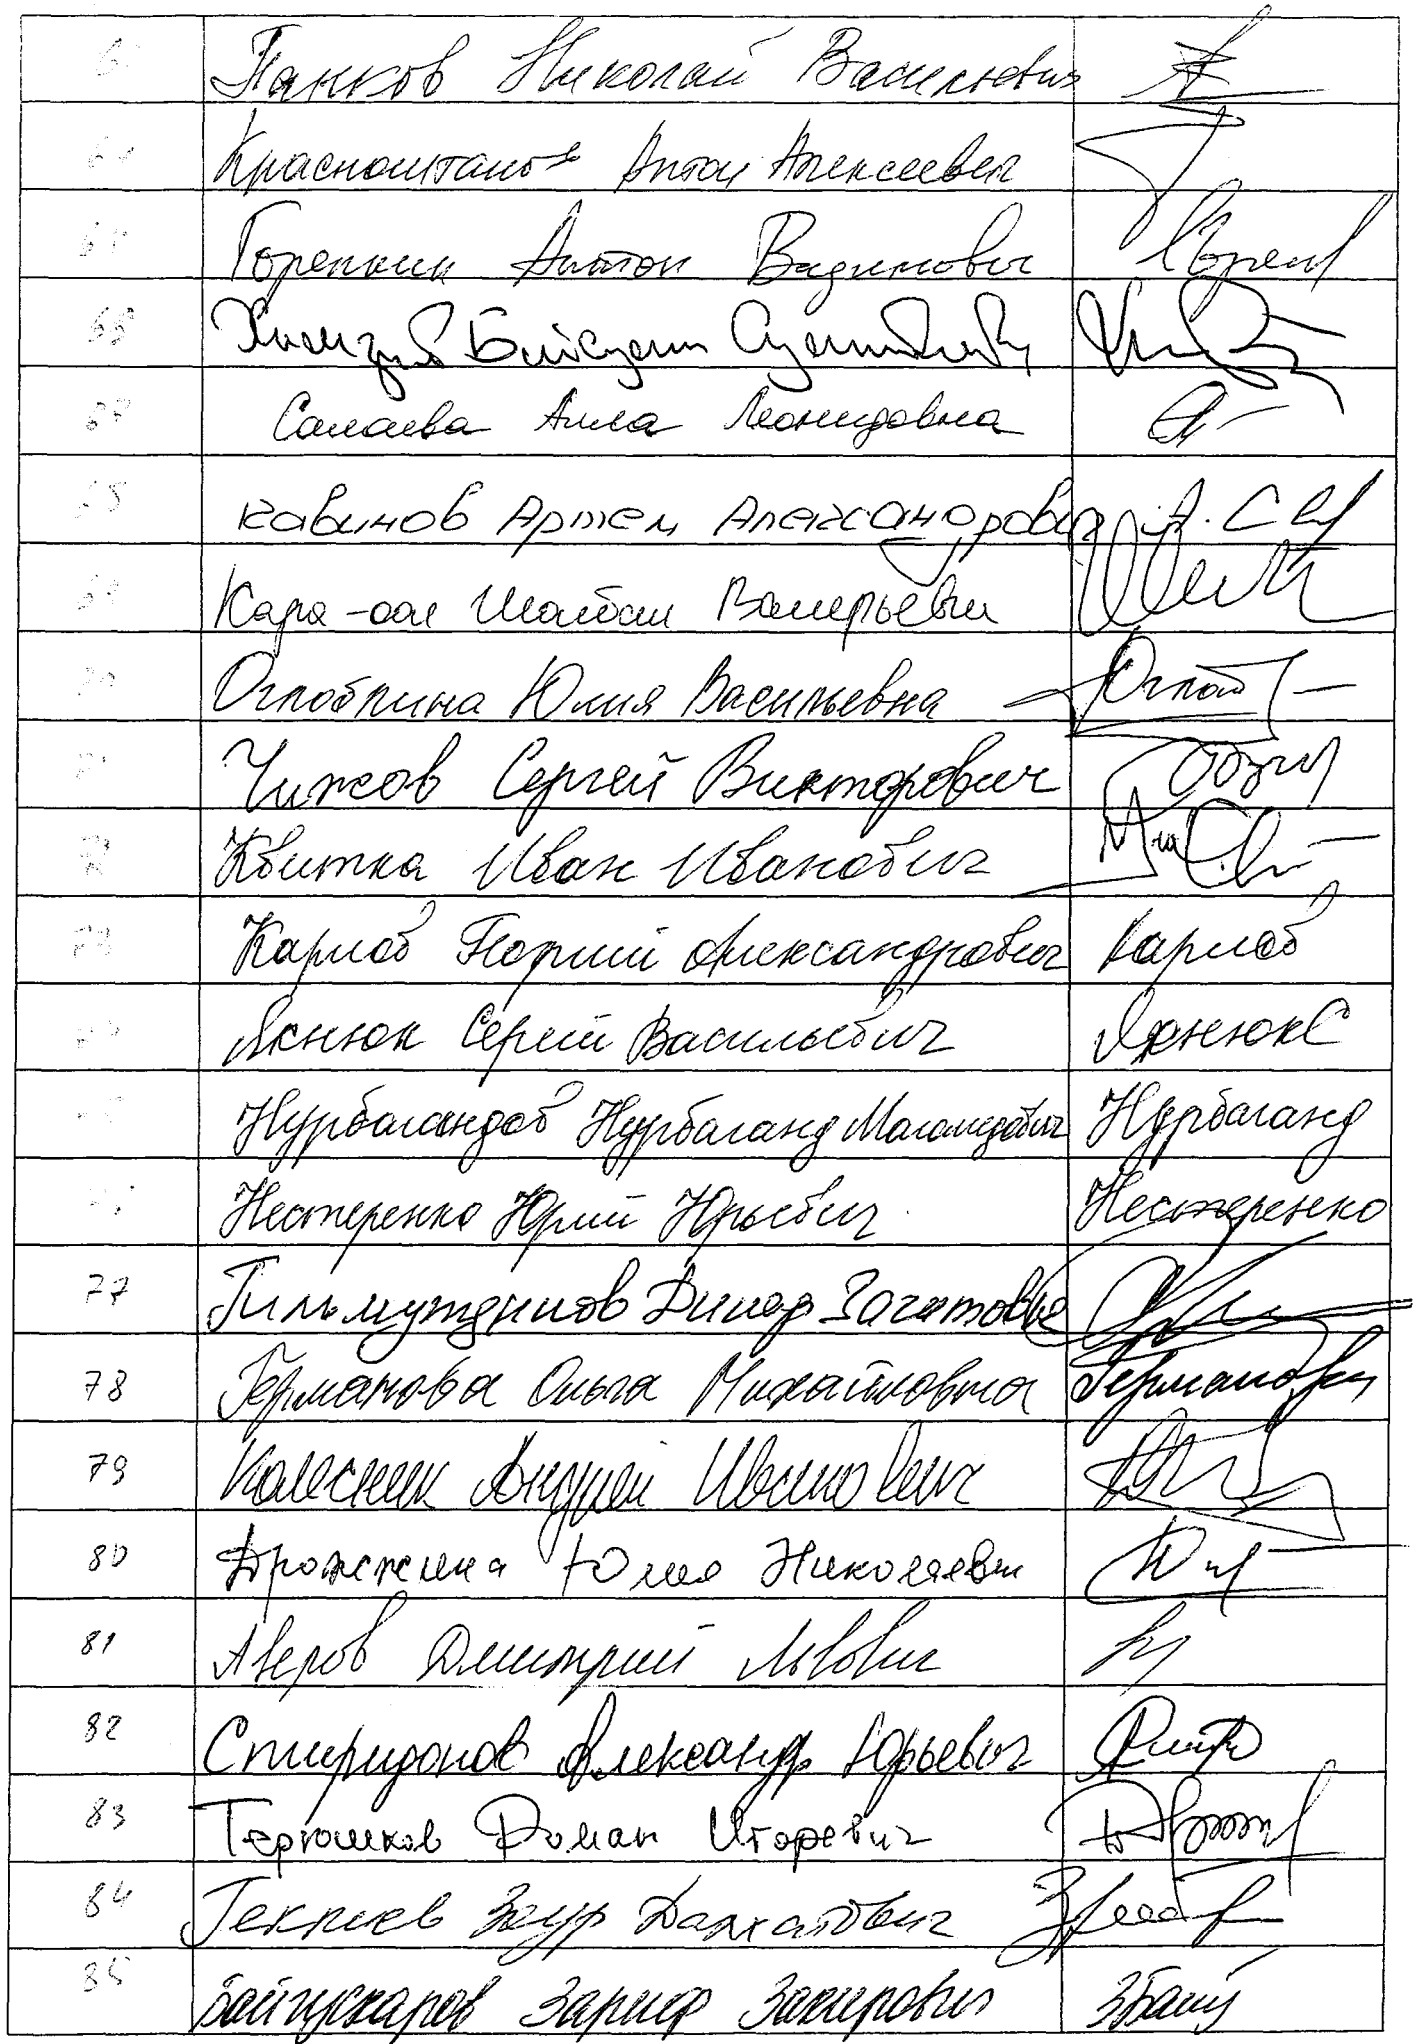 Панков Николай Васильевич
Красноштанов Антон Алексеевич
Горелкин Антон Вадимович Горел
68 Хамзаев Бийсултан Султанбиевич
67 Салаева Алла Леонидовна
Кавинов Артём Александрович
69 Кара-оол Шолбан Валерьевич
70 Оглоблина Юлия Васильевна Оглоб
Чижов Сергей Викторович
72 Квитка Иван Иванович
73 Карлов Георгий Александрович Карлов
Якнюк Сергей Васильевич Якнюк С
Нурбагандов Нурбаганд Магомедович Нурбаганд
Нестеренко Юрий Юрьевич Нестеренко
77 Гильмутдинов Динар Загитович
78 Германова Ольга Михайловна Германова
79 Колесник Андрей Иванович
80 Дрожжина Юлия Николаевна
81 Аверов Дмитрий Львович
82 Спиридонов Александр Юрьевич
83 Терюшков Роман Игоревич
84 Геккиев Заур Далхатович
85 Байгускаров Зариф Закирович ЗБайг